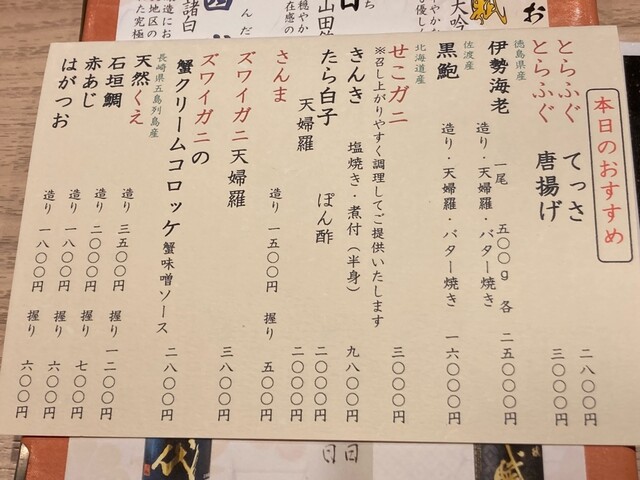 本日のおすすめ
とらふぐ てっさ 二八〇〇円
とらふぐ 唐揚げ 三〇〇〇円
徳島県産
伊勢海老 一尾 五〇〇g 各 二五〇〇〇円
造り・天婦羅・バター焼き
佐渡産
黒鮑 造り・天婦羅・バター焼き 一六〇〇〇円
北海道産
せこガニ 三〇〇〇円
※召し上がりやすく調理してご提供いたします
きんき 塩焼き・煮付(半身) 九八〇〇円
たら白子 ぽん酢 二〇〇〇円
天婦羅 二〇〇〇円
さんま 造り 一五〇〇円 握り 五〇〇円
ズワイガニ天婦羅 三八〇〇円
ズワイガニの
蟹クリームコロッケ 蟹味噌ソース 二八〇〇円
長崎県五島列島産
天然くえ 造り 三五〇〇円 握り 一二〇〇円
石垣鯛 造り 二〇〇〇円 握り 七〇〇円
赤あじ 造り 一八〇〇円 握り 六〇〇円
はがつお 造り 一八〇〇円 握り 六〇〇円